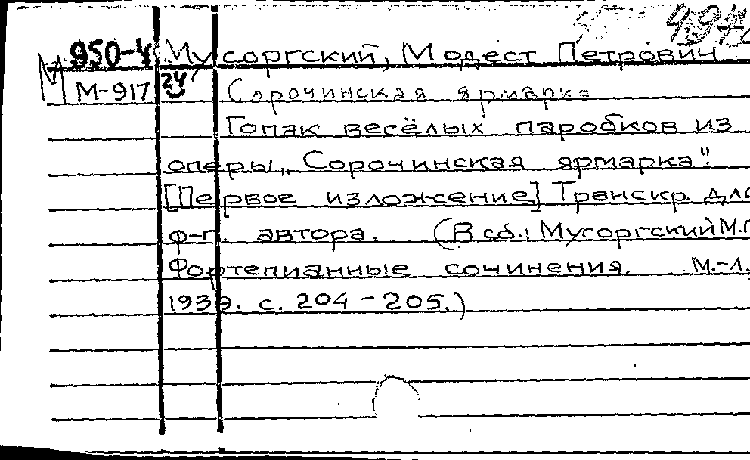 950-4 Мусоргский, Модест Петрович
М-917 Сорочинская ярмарка
Гопак весёлых паробков из
оперы „Сорочинская ярмарка".
[Первое изложение] Транскр. для
ф-п. автора. (В сб.: Мусоргский М.П
Фортепианные сочинения. М.-Л.,
1939. с. 204-205.)